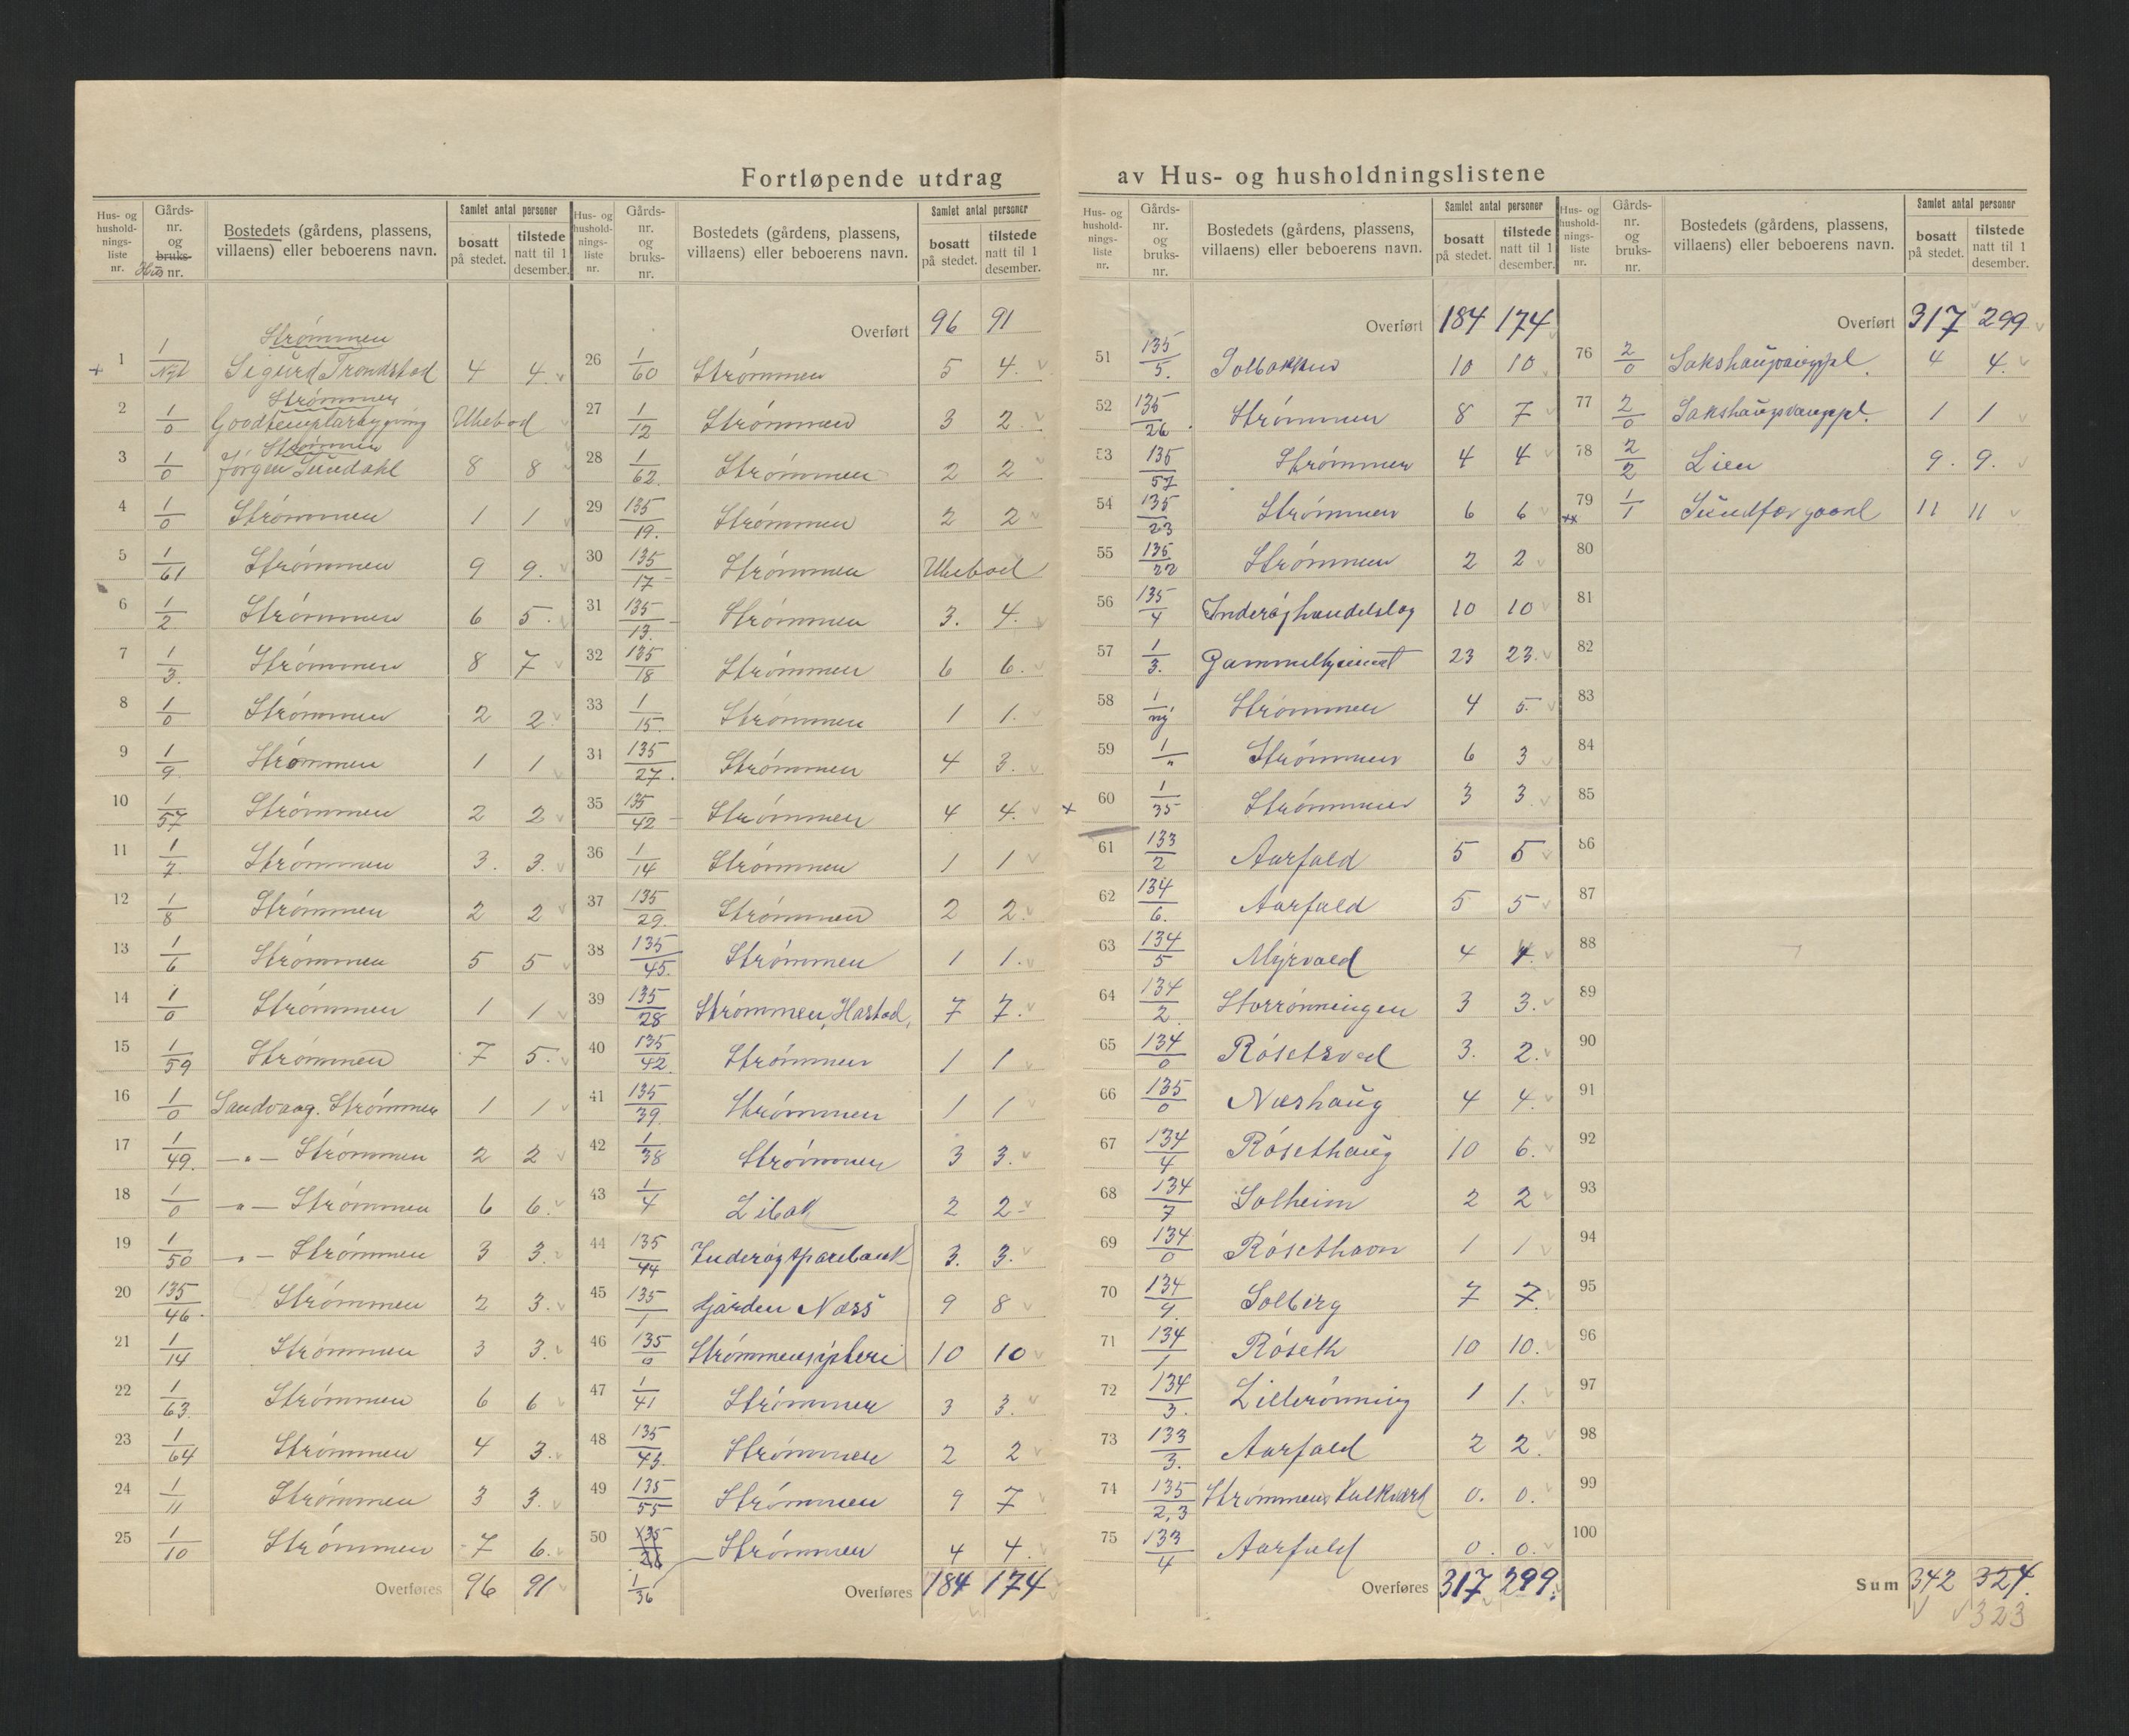 Fortløpende utdrag av Hus- og husholdningslistene
Hus- og hushold-nings-liste nr. Gårds-nr. og bruks-nr. Hus Bostedets (gårdens, plassens, villaens) eller beboerens navn. Samlet antal personer bosatt på stedet. tilstede natt til 1 desember.
Strømmen
+ 1 1/Nyt Sigurd Trondstad 4 4.
Strømmen
2 1/0 Goodtemplarbygning Ubebod
Strømmen
3 1/0 Jørgen Sundahl 8 8
4 1/0 Strømmen 1 1
5 1/61 Strømmen 9 9.
6 1/2 Strømmen 6 5.
7 1/3. Strømmen 8 7
8 1/0 Strømmen 2 2.
9 1/9. Strømmen 1 1
10 1/57 Strømmen 2 2
11 1/7. Strømmen 3. 3.
12 1/8 Strømmen 2 2
13 1/6 Strømmen 5 5
14 1/0 Strømmen 1 1
15 1/59 Strømmen 7 5.
16 1/0 Sandvaag. Strømmen 1 1
17 1/49. —„— Strømmen 2 2
18 1/0 —„— Strømmen 6 6.
19 1/50 —„— Strømmen 3 3.
20 135/46. Strømmen 2 3.
21 1/14 Strømmen 3 3.
22 1/63. Strømmen 6 6
23 1/64 Strømmen 4 3.
24 1/11 Strømmen 3 3.
25 1/10 Strømmen 7 6.
Overføres 96 91
Hus- og hushold-nings-liste nr. Gårds-nr. og bruks-nr. Bostedets (gårdens, plassens, villaens) eller beboerens navn. Samlet antal personer bosatt på stedet. tilstede natt til 1 desember.
Overført 96 91
26 1/60 Strømmen 5 4.
27 1/12 Strømmen 3 2.
28 1/62. Strømmen 2 2
29 135/19. Strømmen 2 2
30 135/17 Strømmen Ubebod
31 135/13. Strømmen 3. 4.
32 135/18 Strømmen 6 6.
33 1/15. Strømmen 1 1.
34 135/27. Strømmen 4 3.
35 135/42 Strømmen 4 4.
36 1/14 Strømmen 1 1
37 135/29. Strømmen 2 2.
38 135/45. Strømmen 1 1.
39 135/28 Strømmen, Hastad, 7 7.
40 135/42. Strømmen 1 1
41 135/39. Strømmen 1 1
42 1/38 Strømmen 3 3.
43 1/4 Libak 2 2
44 135/44 Inderøy Sparebank 3. 3.
45 135/1 Gjården Næss 9 8
46 135/0 Strømmens ysteri 10 10
47 1/41 Strømmen 3 3.
48 135/43. Strømmen 2 2
49 135/55 Strømmen 9 7
50 1/36 Strømmen 4 4.
Overføres 184 174
Hus- og hushold-nings-liste nr. Gårds-nr. og bruks-nr. Bostedets (gårdens, plassens, villaens) eller beboerens navn. Samlet antal personer bosatt på stedet. tilstede natt til 1 desember.
Overført 184 174
51 135/5. Solbakken 10 10
52 135/26. Strømmen 8 7
53 135/57 Strømmen 4 4
54 135/23 Strømmen 6 6
55 135/22 Strømmen 2 2
56 135/4 Inderøy handelslag 10 10
57 1/3. Gammelhjemmet 23 23.
58 1/ny Strømmen 4 5.
59 1/„ Strømmen 6 3
+ 60 1/35 Strømmen 3 3.
61 133/2 Aarfald 5 5
62 134/6. Aarfald 5 5
63 134/5 Myrvold 4 4.
64 134/2. Storrønningen 3 3.
65 134/0 Røsetsvol 3. 2.
66 135/0 Næshaug 4 4.
67 134/4 Røsethaug 10 6.
68 134/7 Solheim 2 2
69 134/0 Røsethaon 1 1
70 134/9. Solberg 7 7.
71 134/1 Røseth 10 10.
72 134/3. Lillerønning 1 1.
73 133/3. Aarfald 2 2.
74 135/2,3 Strømmens Kalkværk 0. 0.
75 133/4 Aarfald 0. 0.
Overføres 317 299.
Hus- og hushold-nings-liste nr. Gårds-nr. og bruks-nr. Bostedets (gårdens, plassens, villaens) eller beboerens navn. Samlet antal personer bosatt på stedet. tilstede natt til 1 desember.
Overført 317 299
76 2/0 Sakshaugvangpl. 4 4.
77 2/0 Sakshaugsvangpl. 1 1
78 2/2 Lien 9. 9.
xx 79 1/1 Sundfærgaard 11 11
80
81
82
83
84
85
86
87
88
89
90
91
92
93
94
95
96
97
98
99
100
Sum 342 324.
323